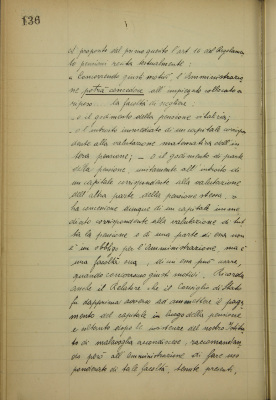 136
A proposito del primo quesito l'art. 16 del Regolamento
pensioni recita testualmente:
"Concorrendo giusti motivi, l'Amministrazio
ne potrà concedere all'impiegato collocato a
riposo ... la facoltà di scegliere:
o il godimento della pensione vitalizia;
o l'introito immediato di un capitale corrispon
dente alla valutazione matematica dell'in
tera pensione; o il godimento di parte
della pensione, unitamente all'introito di
un capitale corrispondente alla valutazione
dell'altra parte della pensione stessa.
La concessione dunque di un capitale imme
diato corrispondente alla valutazione di tut
ta la pensione o di una parte di essa non
è un obbligo per l'Amministrazione, ma è
una facoltà sua, di cui essa può usare,
quando concorrano giusti motivi. Ricorda
anche il Relatore che il Consiglio di Stato
fu dapprima avverso ad ammettere il paga
mento del capitale in luogo della pensione
e soltanto dopo le insistenze del nostro Istitu
to di malavoglia accondiscese, raccomandan
do però all'amministrazione di fare uso
ponderato di tale facoltà, tenute presenti,